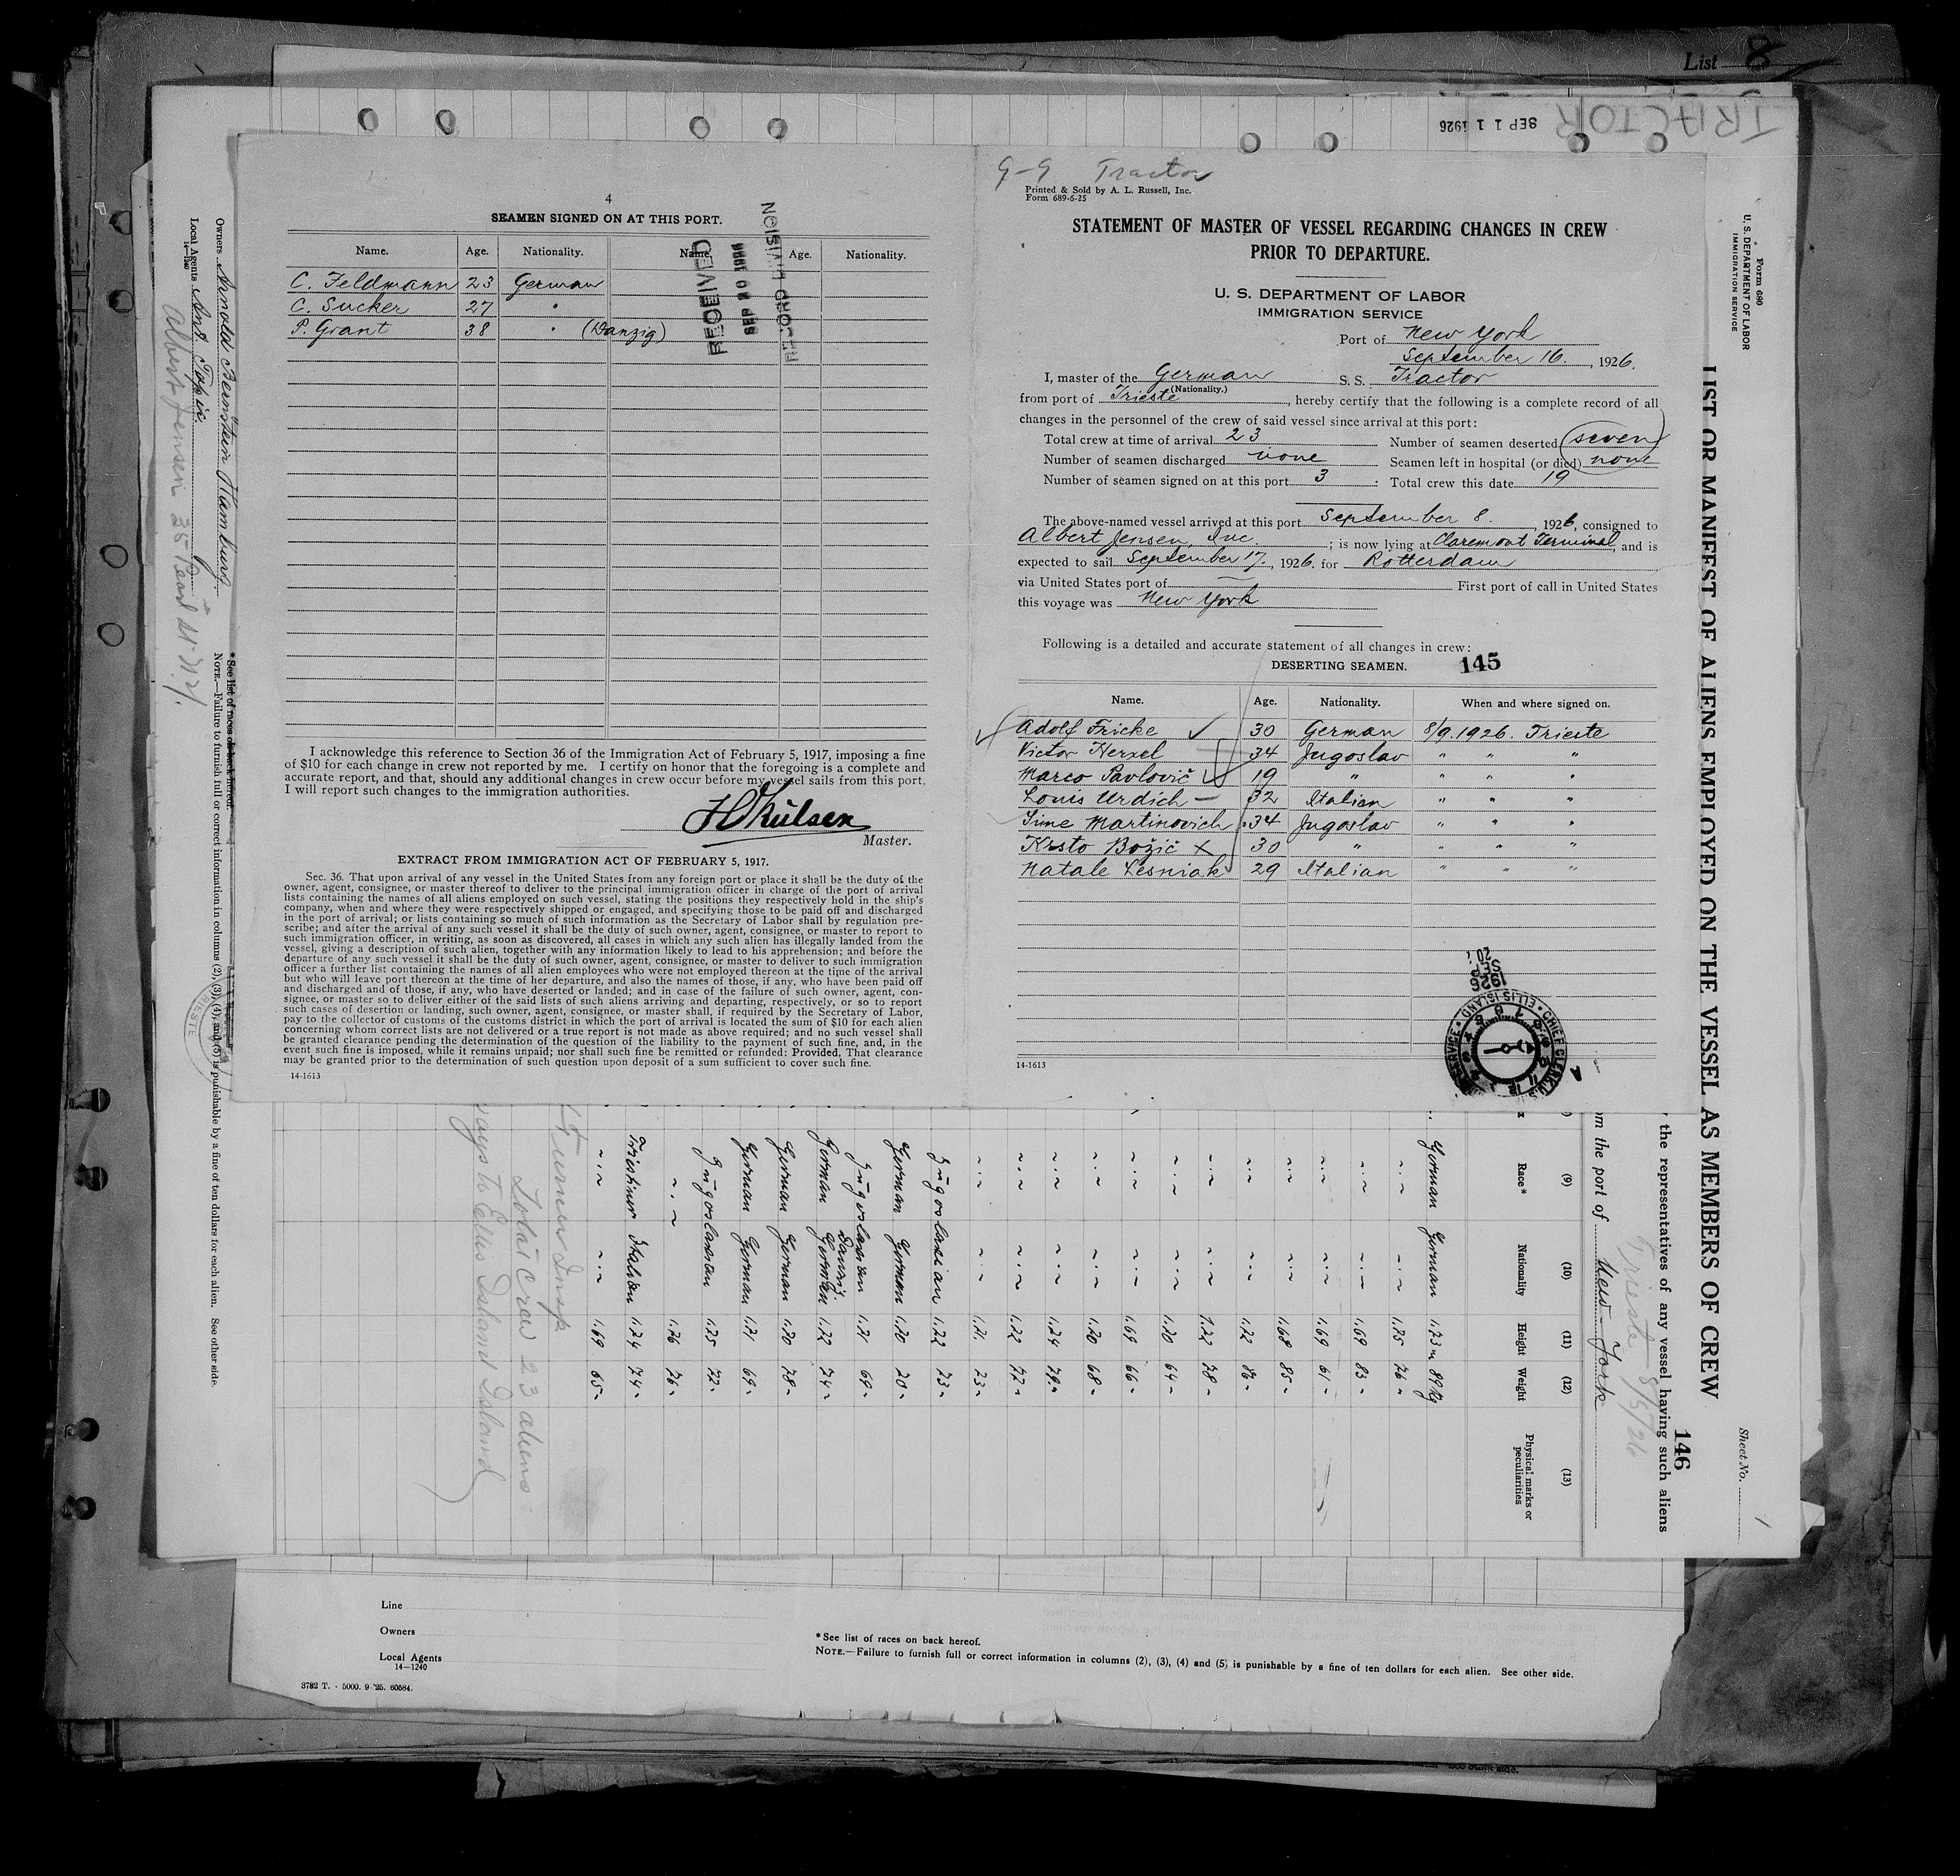 List 8
TRACTOR
SEP 11 1926
4
SEAMEN SIGNED ON AT THIS PORT.
Name. Age. Nationality. Name. Age. Nationality.
C. Feldmann 23 German
C. Sucker 27 "
P. Grant 38 " (Danzig)
RECEIVED
SEP 20 1926
RECORD DIVISION
I acknowledge this reference to Section 36 of the Immigration Act of February 5, 1917, imposing a fine
of $10 for each change in crew not reported by me. I certify on honor that the foregoing is a complete and
accurate report, and that, should any additional changes in crew occur before my vessel sails from this port,
I will report such changes to the immigration authorities.
Master.
EXTRACT FROM IMMIGRATION ACT OF FEBRUARY 5, 1917.
Sec. 36. That upon arrival of any vessel in the United States from any foreign port or place it shall be the duty of the
owner, agent, consignee, or master thereof to deliver to the principal immigration officer in charge of the port of arrival
lists containing the names of all aliens employed on such vessel, stating the positions they respectively hold in the ship's
company, when and where they were respectively shipped or engaged, and specifying those to be paid off and discharged
in the port of arrival; or lists containing so much of such information as the Secretary of Labor shall by regulation pre-
scribe; and after the arrival of any such vessel it shall be the duty of such owner, agent, consignee, or master to report to
such immigration officer, in writing, as soon as discovered, all cases in which any such alien has illegally landed from the
vessel, giving a description of such alien, together with any information likely to lead to his apprehension; and before the
departure of any such vessel it shall be the duty of such owner, agent, consignee, or master to deliver to such immigration
officer a further list containing the names of all alien employees who were not employed thereon at the time of the arrival
but who will leave port thereon at the time of her departure, and also the names of those, if any, who have been paid off
and discharged and of those, if any, who have deserted or landed; and in case of the failure of such owner, agent, con-
signee, or master so to deliver either of the said lists of such aliens arriving and departing, respectively, or so to report
such cases of desertion or landing, such owner, agent, consignee, or master shall, if required by the Secretary of Labor,
pay to the collector of customs of the customs district in which the port of arrival is located the sum of $10 for each alien
concerning whom correct lists are not delivered or a true report is not made as above required; and no such vessel shall
be granted clearance pending the determination of the question of the liability to the payment of such fine, and, in the
event such fine is imposed, while it remains unpaid; nor shall such fine be remitted or refunded: Provided, That clearance
may be granted prior to the determination of such question upon deposit of a sum sufficient to cover such fine.
14-1613
9-9 Tractor
Printed & Sold by A. L. Russell, Inc.
Form 689-6-25
STATEMENT OF MASTER OF VESSEL REGARDING CHANGES IN CREW
PRIOR TO DEPARTURE.
U. S. DEPARTMENT OF LABOR
IMMIGRATION SERVICE
Port of New York
September 16. , 1926.
I, master of the German S. S. Tractor
(Nationality.)
from port of Trieste , hereby certify that the following is a complete record of all
changes in the personnel of the crew of said vessel since arrival at this port:
Total crew at time of arrival 23 Number of seamen deserted seven
Number of seamen discharged none Seamen left in hospital (or died) none
Number of seamen signed on at this port 3 : Total crew this date 19
The above-named vessel arrived at this port September 8. , 1926, consigned to
Albert Jensen, Inc. ; is now lying at Claremont Terminal, and is
expected to sail September 17. , 1926. for Rotterdam
via United States port of — First port of call in United States
this voyage was New York
Following is a detailed and accurate statement of all changes in crew:
DESERTING SEAMEN. 145
Name. Age. Nationality. When and where signed on.
Adolf Fricke 30 German 8/9.1926. Trieste
Victor Herzel 34 Jugoslav " " "
Marco Pavlovič 19 " " " "
Louis Urdich 32 Italian " " "
Sime Martinovich 34 Jugoslav " " "
Krsto Božič X 30 " " " "
Natale Lesniak 29 Italian " " "
14-1613
1926
SEP
20
CHIEF CLERK ELLIS ISLAND
Form 680
U. S. DEPARTMENT OF LABOR
IMMIGRATION SERVICE
LIST OR MANIFEST OF ALIENS EMPLOYED ON THE VESSEL AS MEMBERS OF CREW
Sheet No. 1
146
the representatives of any vessel having such aliens
Trieste 8/5/26
from the port of New-York
(9) (10) (11) (12) (13)
Race* Nationality Height Weight Physical marks or
peculiarities
German German 1.73 m 89 Kg
" " 1.75 76 "
" " 1.69 83 "
" " 1.69 61 "
" " 1.68 85 "
" " 1.72 86 "
" " 1.72 78 "
" " 1.70 64 "
" " 1.69 66 "
" " 1.70 68 "
" " 1.74 79 "
" " 1.72 77 "
" " 1.71 73 "
Jugoslavian 1.72 73 "
German German 1.70 70 "
Jugoslavian 1.71 69 "
German Danzig. German 1.72 74 "
German German 1.70 78 "
German German 1.71 69 "
Jugoslavian 1.75 72 "
" " 1.76 76 "
Triestiner Italian 1.74 74 "
" " 1.69 65 "
Turner Insp
Total crew 23 aliens
Ellis Island
Owners Arnold Bernstein Hamburg
Local Agents Ant. Topic.
14-1240
Albert Jensen 25 Pearl St. N.Y.
*See list of races on back hereof.
NOTE.—Failure to furnish full or correct information in columns (2), (3), (4), and (5) is punishable by a fine of ten dollars for each alien. See other side.
TRIESTE
Line
Owners
Local Agents
14-1240
3782 T. - 5000. 9-'25. 60584.
*See list of races on back hereof.
NOTE.—Failure to furnish full or correct information in columns (2), (3), (4) and (5) is punishable by a fine of ten dollars for each alien. See other side.
See other side.